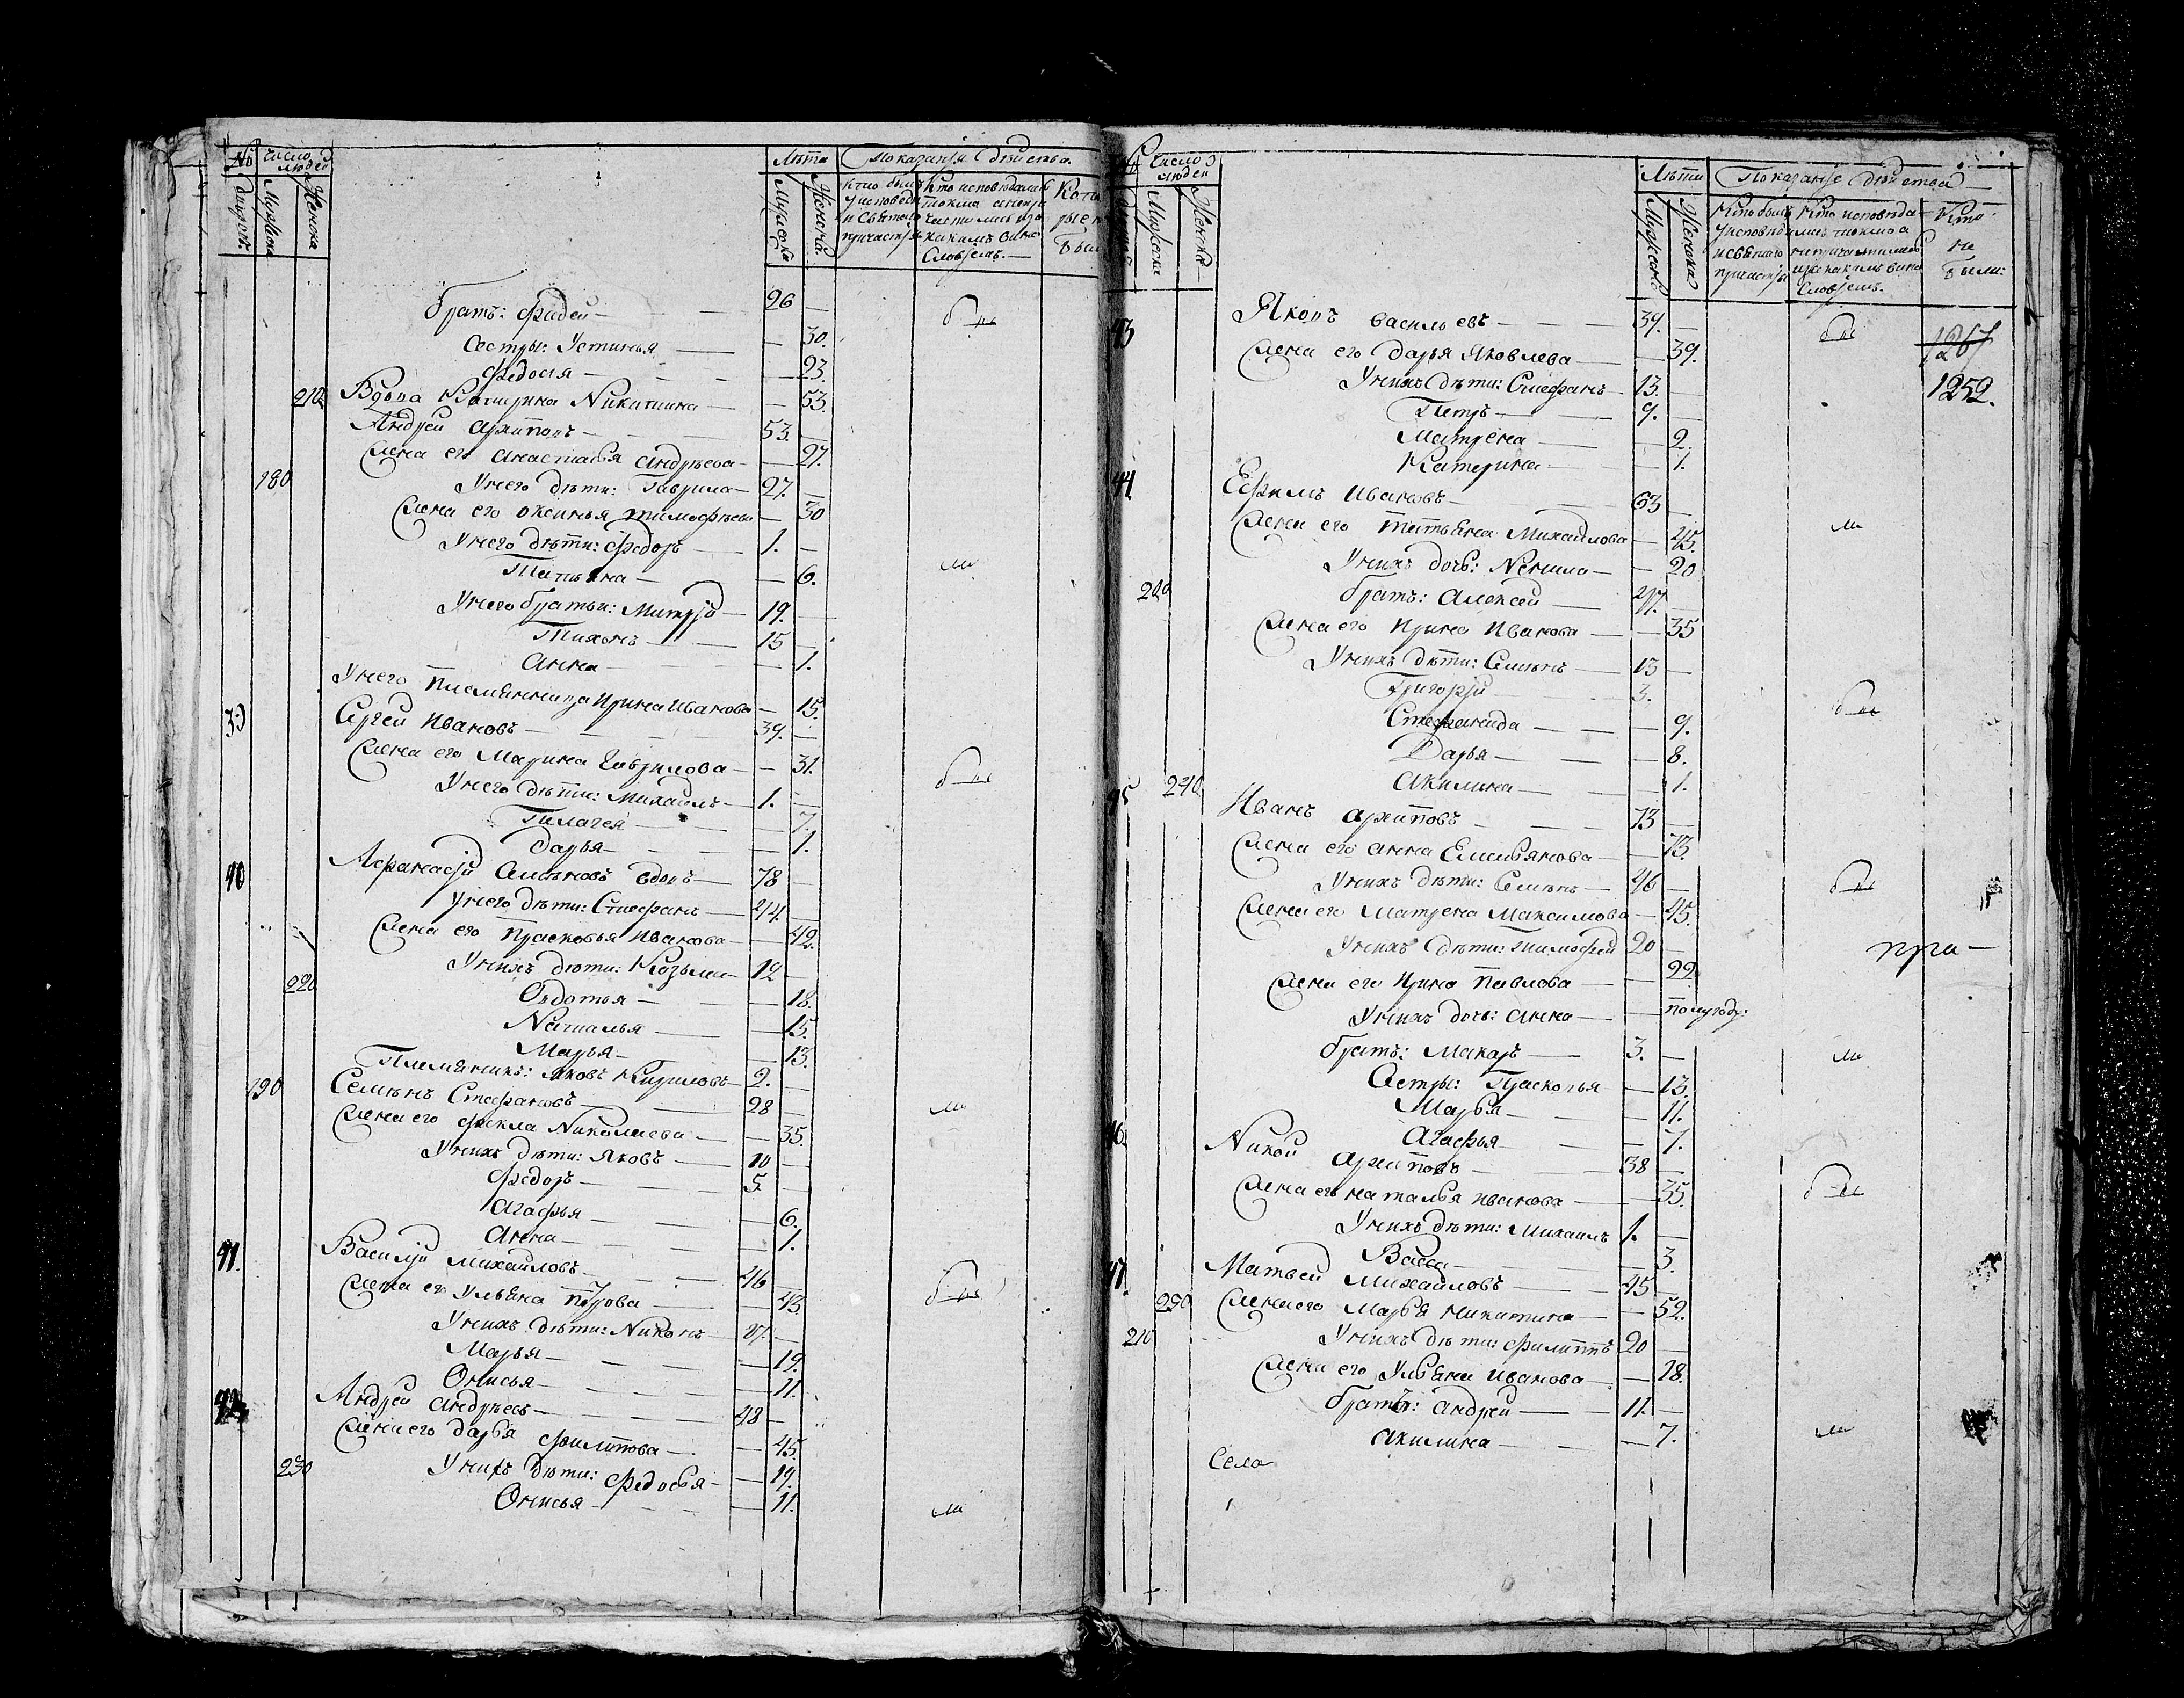 No число людей Лѣта Показанія дѣйства.
дворовъ. Мужска Женска Мужска Женска. кто былъ у исповѣди и святаго причастія Кто исповѣдался токмо а непричастились и за какимъ винословіемъ.
Братъ: Фадей — 26 —
Сестры: Устинья — 30.
Федосія — 23.
210 Вдова Катерина Никитина — 53.
Андрей Архиповъ — 53. —
Жена его Анастасья Андрѣева — 27.
180 У него дѣти: Гаврила — 27. —
Жена его Оксинья Тимофѣева — 30
У него дѣти: Федоръ — 1. —
Татьяна — 6.
У него братьи: Митрій — 19. —
Тихонъ — 15 —
Анна — 1.
У него племянница Ирина Иванова — 15.
39 Сергей Ивановъ — 39. —
Жена его Марина Гаврилова — 31.
У него дѣти: Михаилъ — 1. —
Пилагея — 7.
Дарья — 1.
40 Афанасій Симѣновъ вдовъ — 78 —
У него дѣти: Стефанъ — 44. —
Жена его Прасковья Иванова — 42.
У нихъ дѣти: Козьма — 12 —
220 Овдотья — 18.
Наталья — 15.
Марья — 13.
Племянникъ: Яковъ Кириловъ — 2. —
190 Семенъ Стефановъ — 28 —
Жена его Фекла Николаева — 35.
У нихъ дѣти: Яковъ — 10 —
Федоръ — 5 —
Агафья — 6.
Анна — 1.
41. Василій Михайловъ — 46 —
Жена его Ульяна Петрова — 43
У нихъ дѣти: Никонъ — 17. —
Марья — 19.
Онисья — 11.
42 Андрей Андрѣевъ — 48 —
Жена его Дарья Филипова — 45.
230 У нихъ дѣти: Федосья — 19.
Онисья — 11.
Число людей Лѣта Показаніе дѣйства
Мужска Женска Мужска Женска Кто былъ у исповѣди и святаго причастія Кто исповѣдались токмо а непричастились и за какимъ винословіемъ. Кто не были:
43 Яковъ Васильевъ — 39. —
1267
Жена его Дарья Яковлева — 39.
У нихъ дѣти: Стефанъ — 13. —
1252.
Петръ — 9. —
Матрена — 2.
Катерина — 1.
44 Ефимъ Ивановъ — 63 —
Жена его Татьяна Михайлова — 45.
У нихъ дочь: Ненила — 20
200 Братъ: Алексей — 47. —
Жена его Ирина Иванова — 35
У нихъ дѣти: Семѣнъ — 13 —
Григорій — 3.
Стефанида — 9.
Дарья — 8.
240 Акилина — 1.
45 Иванъ Архиповъ — 73 —
Жена его Анна Емельянова — 73.
У нихъ дѣти: Семѣнъ — 46 —
Жена его Матрена Максимова — 45.
У нихъ дѣти: Тимофей 20 —
пра —
Жена его Ирина Павлова — 22.
У нихъ дочь: Анна — полугоду.
Братъ: Макаръ — 3. —
Сестры: Прасковья — 13.
Марья — 11.
Агафья — 7.
46. Никон Архиповъ — 38 —
Жена его Наталья Иванова — 35.
У нихъ дѣти: Михаилъ 1. —
Васса — 3.
47. Матвей Михайловъ — 45 —
250 Жена его Марья Никитина — 52.
210 У нихъ дѣти: Филиппъ 20 —
Жена его Ульяна Иванова — 18.
Братъ: Андрей — 11. —
Акилина — 7.
Села